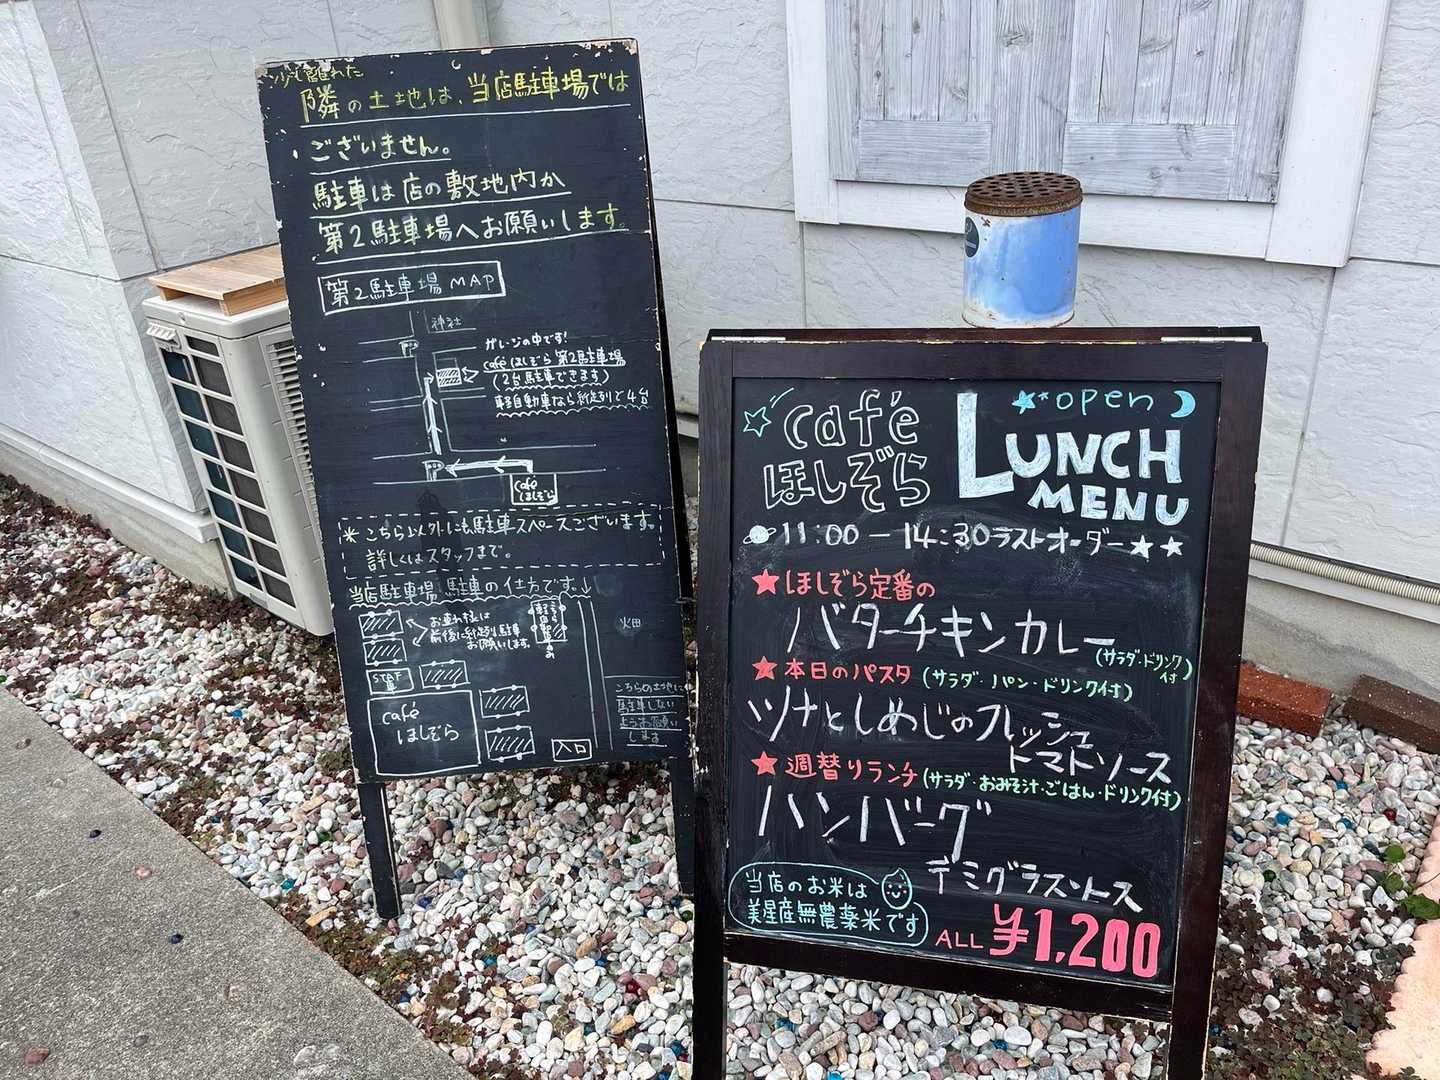 少し離れた
隣の土地は、当店駐車場では
ございません。
駐車は店の敷地内か
第2駐車場へお願いします。
第2駐車場 MAP
神社
ガレージの中です!
café ほしぞら 第2駐車場
(2台駐車できます)
軽自動車なら縦列で4台
café
ほしぞら
*こちら以外にも駐車スペースございます。
詳しくはスタッフまで。
当店駐車場 駐車の仕方です。↓
お連れ様は
前後に縦列駐車
お願いします。
畑
STAF
車
café
ほしぞら
入口
こちらの土地に
駐車しない
ようお願い
します
café
ほしぞら
open
LUNCH
MENU
11:00 — 14:30ラストオーダー★★
★ほしぞら定番の
バターチキンカレー
(サラダ・ドリンク付)
★本日のパスタ (サラダ・パン・ドリンク付)
ツナとしめじのフレッシュ
トマトソース
★週替りランチ (サラダ・おみそ汁・ごはん・ドリンク付)
ハンバーグ
デミグラスソース
当店のお米は
美星産無農薬米です
ALL ¥1,200